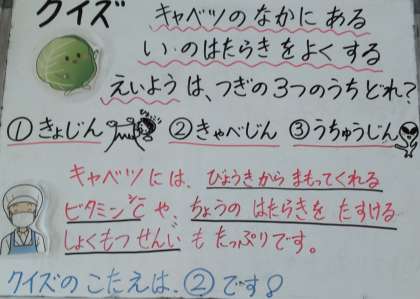 クイズ
キャベツのなかにある
い・のはたらきをよくする
えいようは、つぎの3つのうちどれ?
①きょじん ②きゃべじん ③うちゅうじん
キャベツには、びょうきからまもってくれる
ビタミンCや、ちょうのはたらきをたすける
しょくもつせんいもたっぷりです。
クイズのこたえは、②です